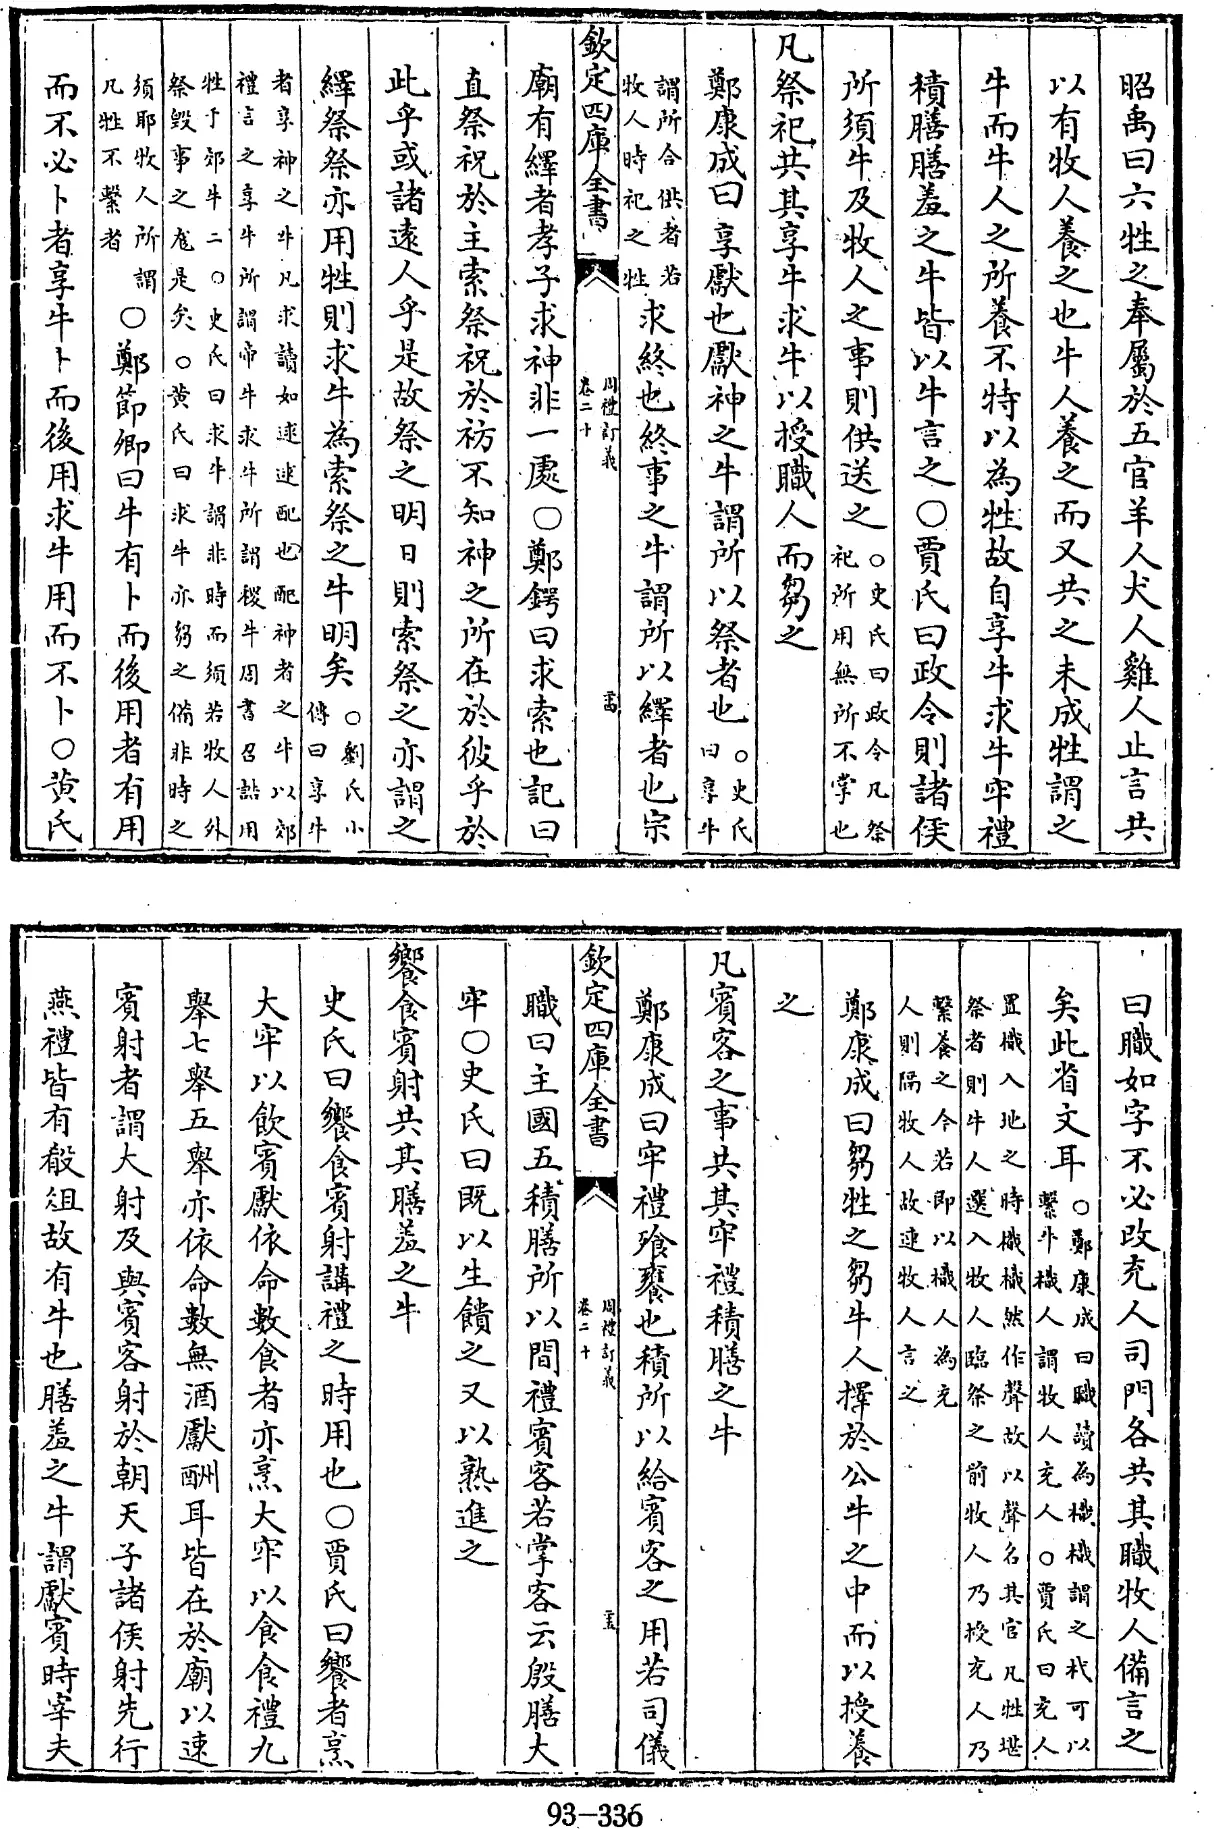 昭禹曰六牲之奉屬於五官羊人犬人雞人止言共
以有牧人養之也牛人養之而又共之未成牲謂之
牛而牛人之所養不特以為牲故自享牛求牛牢禮
積膳膳羞之牛皆以牛言之〇賈氏曰政令則諸侯
所須牛及牧人之事則供送之〇史氏曰政令凡祭
祀所用無所不掌也
凡祭祀共其享牛求牛以授職人而芻之
鄭康成曰享獻也獻神之牛謂所以祭者也〇史氏
曰享牛
謂所合供者若
牧人時祀之牲求終也終事之牛謂所以繹者也宗
欽定四庫全書
周禮訂義
卷二十
廟有繹者孝子求神非一處〇鄭鍔曰求索也記曰
直祭祝於主索祭祝於祊不知神之所在於彼乎於
此乎或諸遠人乎是故祭之明日則索祭之亦謂之
繹祭祭亦用牲則求牛為索祭之牛明矣〇劉氏小
傳曰享牛
者享神之牛凡求讀如逑逑配也配神者之牛以郊
禮言之享牛所謂帝牛求牛所謂稷牛周書召誥用
牲于郊牛二〇史氏曰求牛謂非時而須若牧人外
祭毀事之尨是矣〇黄氏曰求牛亦芻之備非時之
須耶牧人所謂
凡牲不繫者〇鄭節卿曰牛有卜而後用者有用
而不必卜者享牛卜而後用求牛用而不卜〇黄氏
曰職如字不必改充人司門各共其職牧人備言之
矣此省文耳〇鄭康成曰職讀為樴樴謂之杙可以
繫牛樴人謂牧人充人〇賈氏曰充人
置樴入地之時樴樴然作聲故以聲名其官凡牲堪
祭者則牛人選入牧人臨祭之前牧人乃授充人乃
繫養之今若即以樴人為充
人則隔牧人故連牧人言之
鄭康成曰芻牲之芻牛人擇於公牛之中而以授養
之
凡賓客之事共其牢禮積膳之牛
鄭康成曰牢禮飱饔也積所以給賓客之用若司儀
欽定四庫全書
周禮訂義
卷二十
職曰主國五積膳所以間禮賓客若掌客云殷膳大
牢〇史氏曰既以生饋之又以熟進之
饗食賓射共其膳羞之牛
史氏曰饗食賓射講禮之時用也〇賈氏曰饗者烹
大牢以飲賓獻依命數食者亦烹大牢以食食禮九
舉七舉五舉亦依命數無酒獻酬耳皆在於廟以速
賓射者謂大射及與賓客射於朝天子諸侯射先行
燕禮皆有殽俎故有牛也膳羞之牛謂獻賓時宰夫
93-336